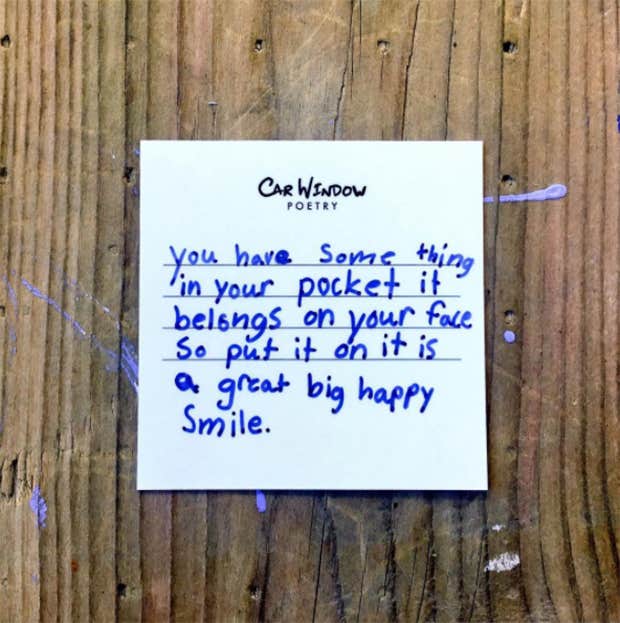 CAR WINDOW
POETRY
you have some thing
in your pocket it
belongs on your face
So put it on it is
a great big happy
Smile.